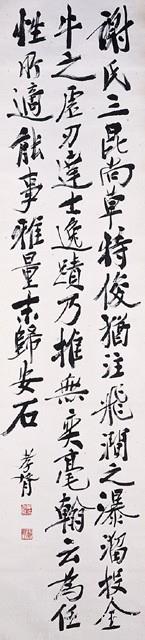 謝氏三昆尚草特俊猶注飛澗之瀑溜投全
牛之虛刃達士逸蹟乃推無奕毫翰云為任
性所適能事雅量末歸安石
孝胥